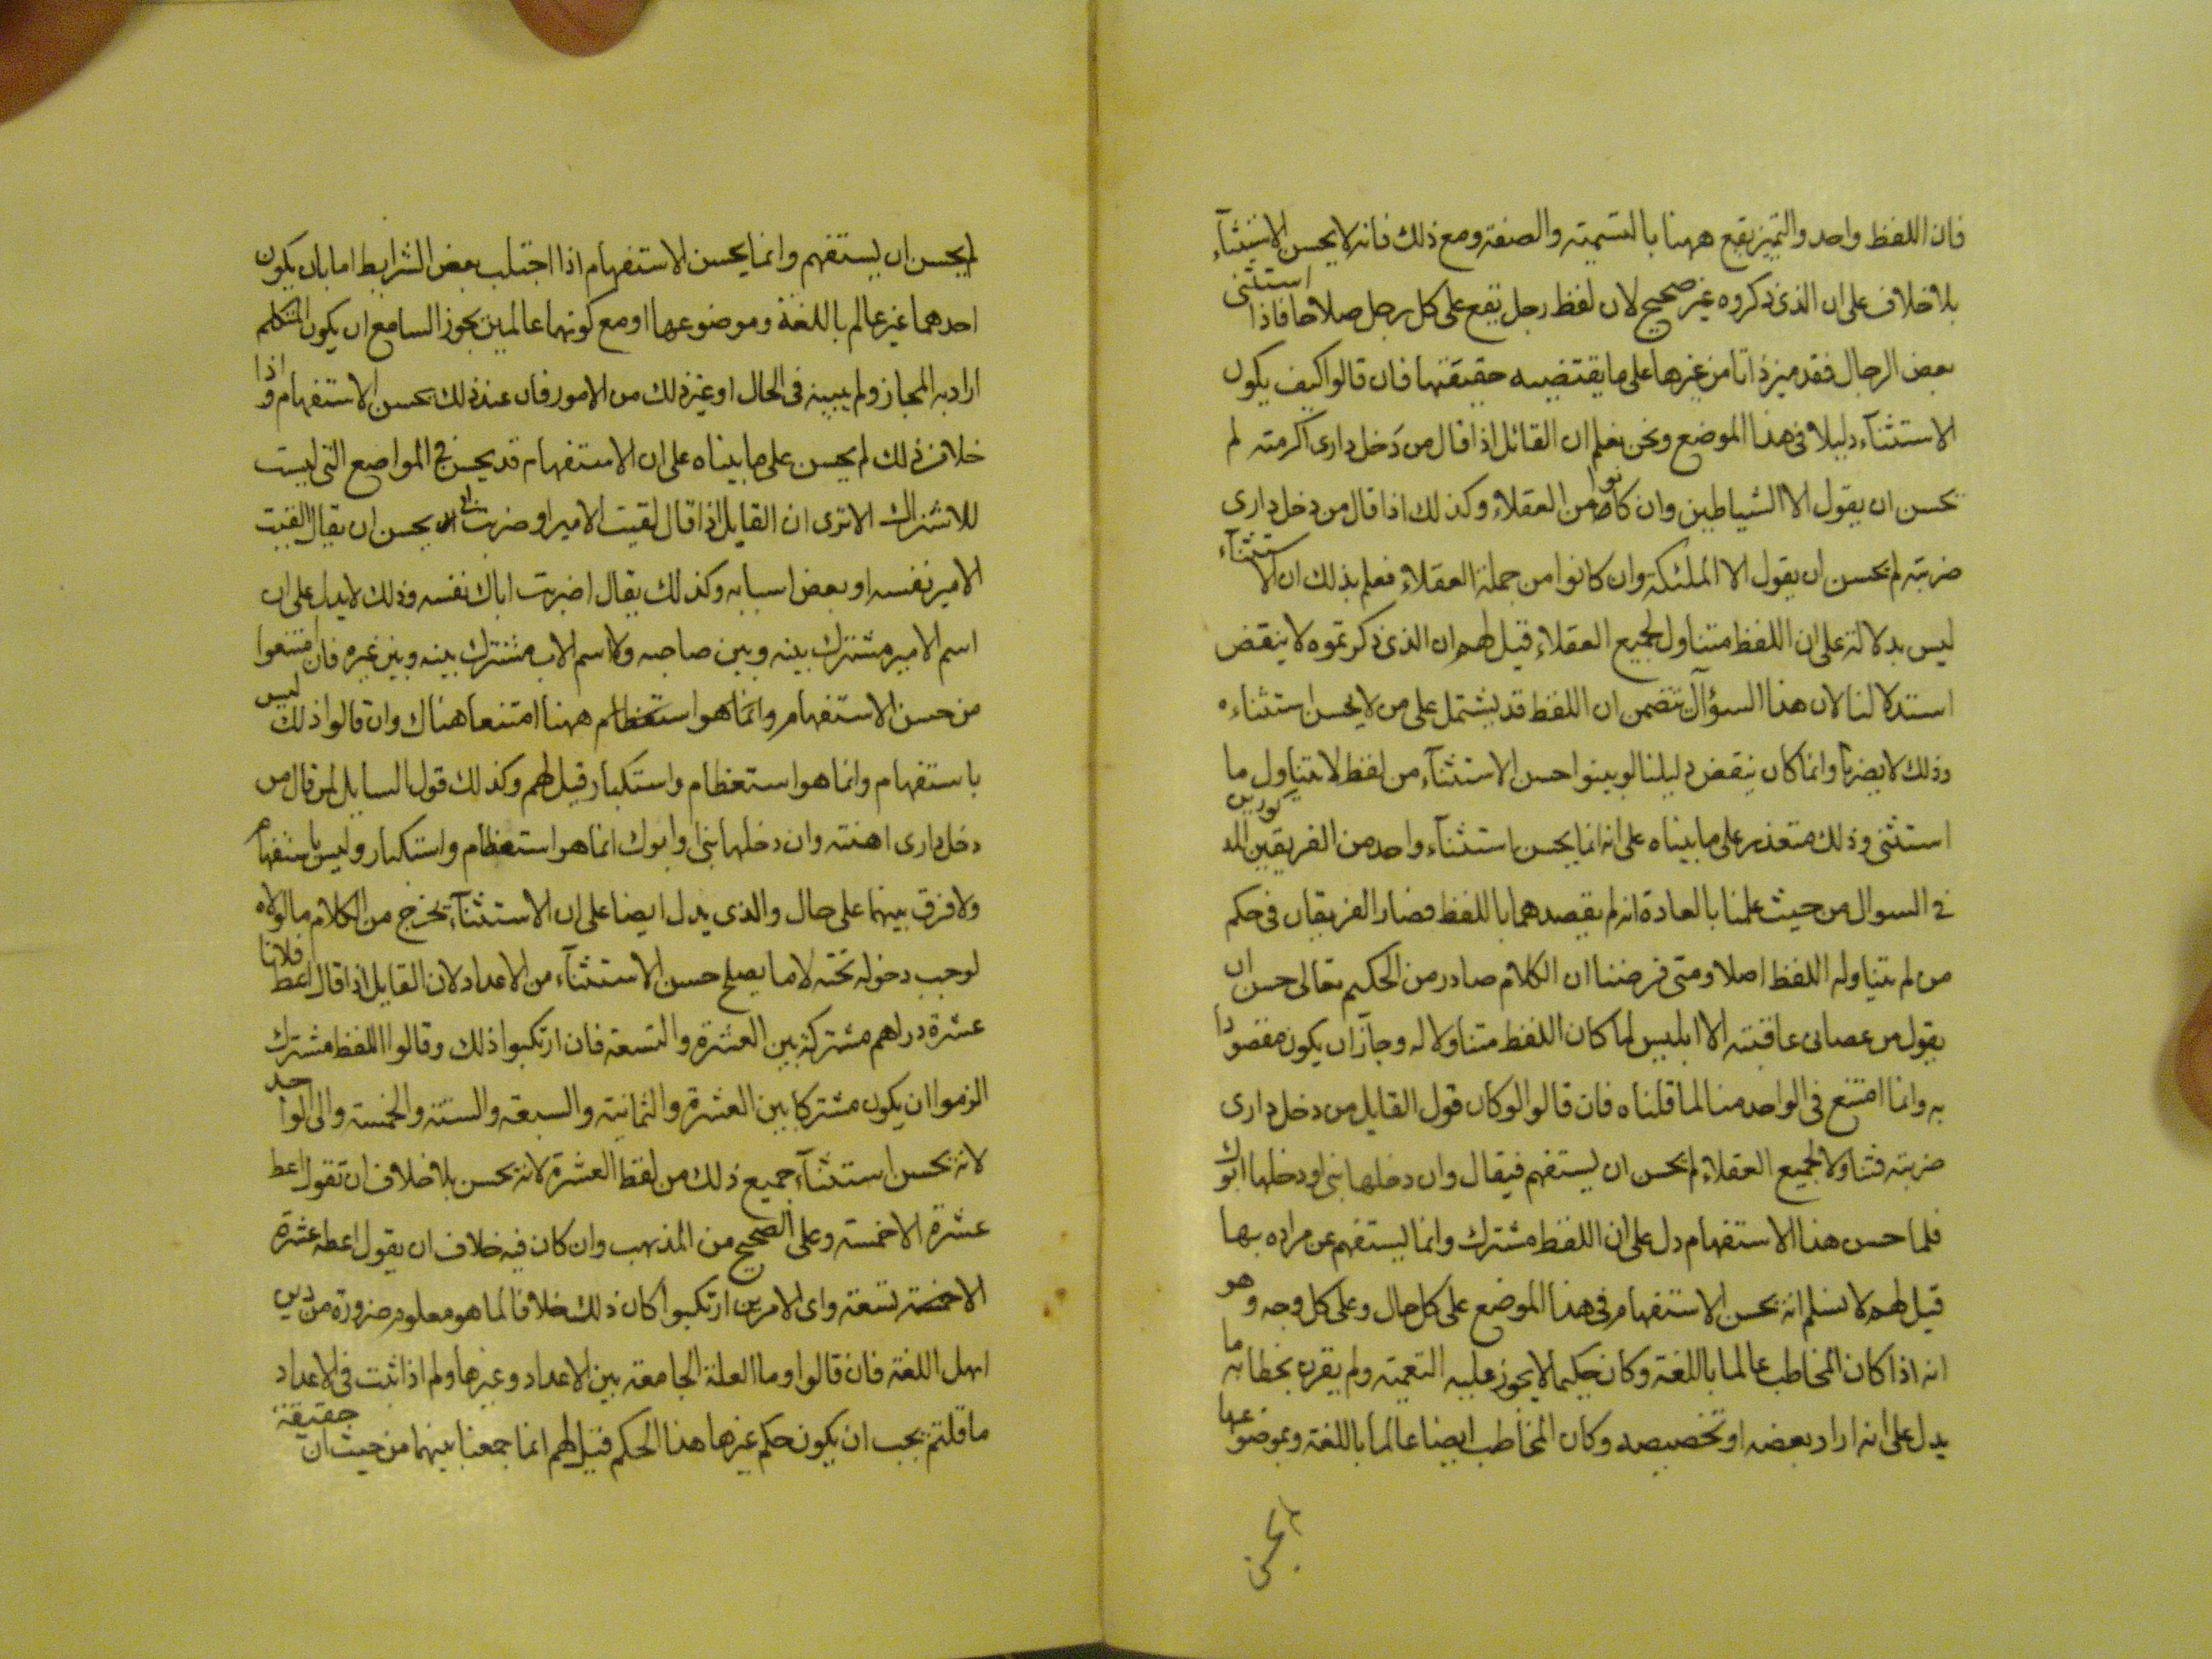 فان اللفظ واحد والتميز يقع ههنا بالتسمية والصفة ومع ذلك فانه لا يحسن الاستثنآء
بلا خلاف على ان الذى ذكروه غير صحيح لان لفظ رجل تقع على كل رجل صلاحا فاذا استثنى
بعض الرجال فقد ميز ذاتا من غيرها على ما يقتضيه حقيقتها فان قالوا كيف يكون
الاستثنآء دليلا فى هذا الموضع ونحن نعلم ان القائل اذا قال من دخل دارى اكرمته لم
يحسن ان يقول الا الشياطين وان كانوا من العقلاء وكذلك اذا قال من دخل دارى
ضربته لم يحسن ان يقول الا الملئكة وان كانوا من جملة العقلاء فعلم بذلك ان الاستثنآء
ليس بدلالة على ان اللفظ متناول لجميع العقلاء قيل لهم ان الذى ذكرتموه لا ينقض
استدلالنا لان هذا السؤال تضمن ان اللفظ قد يشتمل على من لا يحسن استثناءه
وذلك لا يضرنا وانما كان ينقض دليلنا لو بينوا حسن الاستثنآء من لفظ لا يتناول ما
استثنى وذلك متعذر على ما بيناه على انه انما يحسن استثنآء واحد من الفريقين المذكورين
فى السوال من حيث علمنا بالعادة انه لم يقصدهما باللفظ فصار الفريقان فى حكم
من لم يتناوله اللفظ اصلا ومتى فرضنا ان الكلام صادر من الحكيم تعالى حسن ان
يقول من عصانى عاقبته الا ابليس لما كان اللفظ متناولا له وجاز ان يكون مقصودا
به وانما امتنع فى الواحد منا لما قلناه فان قالوا لو كان قول القايل من دخل دارى
ضربته متناولا لجميع العقلاء لم يحسن ان يستفهم فيقال وان دخلها نبى او دخلها ابوك
فلما حسن هذا الاستفهام دل على ان اللفظ مشترك وانما يستفهم عن مراده بها
قيل لهم لا نسلم انه يحسن الاستفهام فى هذا الموضع على كل حال وعلى كل وجه وهو
انه اذا كان المخاطب عالما باللغة وكان حكيما لا يجوز عليه التعمية ولم يقرن بخطابه ما
يدل على انه اراد بعضه او تخصيصه وكان المخاطب ايضا عالما باللغة وبموضوعها
لم يحسن
لم يحسن ان يستفهم وانما يحسن الاستفهام اذا اختلت بعض الشرايط اما بان يكون
احدهما غير عالم باللغة وموضوعها او مع كونهما عالمين يجوز السامع ان يكون المتكلم
اراد به المجاز ولم يبينه فى الحال او غير ذلك من الامور فان عند ذلك يحسن الاستفهام واذا
خلا من ذلك لم يحسن على ما بيناه على ان الاستفهام قد يحسن فى المواضع التى ليست
للاشتراك الا ترى ان القايل اذا قال لقيت الامير او ضربت يحسن ان يقال القيت
الامير نفسه او بعض اسبابه وكذلك يقال اضربت اباك نفسه وذلك لا يدل على ان
اسم الامير مشترك بينه وبين صاحبه ولا اسم الاب مشترك بينه وبين غيره فان امتنعوا
من حسن الاستفهام وانما هو استعظام ههنا امتنعنا هناك وان قالوا ذلك ليس
باستفهام وانما هو استعظام واستكبار قيل لهم وكذلك قول السايل لمن قال من
دخل دارى اهنته وان دخلها نبى او ابوك انما هو استعظام واستكبار وليس باستفهام
ولا فرق بينهما على حال والذى يدل ايضا على ان الاستثنآء يخرج من الكلام ما لولاه
لوجب دخوله تحته لا ما يصلح حسن الاستثنآء من الاعداد لان القايل اذا قال اعط فلانا
عشرة دراهم مشتركة بين العشرة والتسعة فان ارتكبوا ذلك وقالوا اللفظ مشترك
الزموا ان يكون مشتركا بين العشرة والثمانية والسبعة والستة والخمسة والى الواحد
لانه يحسن استثنآء جميع ذلك من لفظ العشرة لانه يحسن بلا خلاف ان تقول اعط
عشرة الا خمسة وعلى الصحيح من المذهب وان كان فيه خلاف ان يقول اعطه عشرة
الا تسعة واى الامرين ارتكبوا كان ذلك خلافا لما هو معلوم ضرورة من دين
اهل اللغة فان قالوا وما العلة الجامعة بين الاعداد وغيرها ولم اذا ثبت فى الاعداد
ما قلتم يجب ان يكون حكم غيرها هذا الحكم قيل لهم انما جمعنا بينهما من حيث ان حقيقة